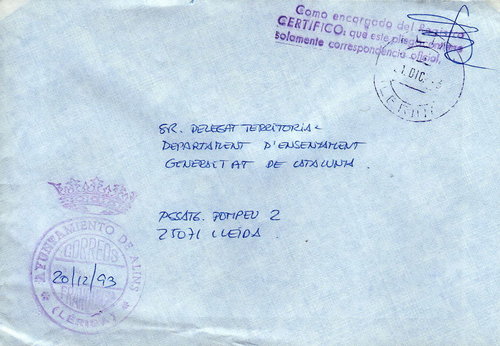 Como encargado del
CERTIFICO: que este pliego contiene
solamente correspondencia oficial,
1 DIC.
LERIDA
SR. DELEGAT TERRITORIAL
DEPARTAMENT D'ENSENYAMENT
GENERALITAT DE CATALUNYA.
PSSATG. POMPEU 2
25071 LLEIDA.
AYUNTAMIENTO DE ALINS
CORREOS
20/12/93
FRANQUICIA
(LERIDA)